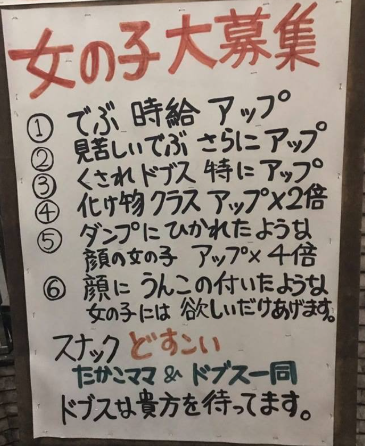 女の子大募集
① でぶ 時給 アップ
② 見苦しいでぶ さらに アップ
③ くされドブス 特に アップ
④ 化け物クラス アップ×2倍
⑤ ダンプにひかれたような
顔の女の子 アップ×4倍
⑥ 顔に うんこの付いたような
女の子には 欲しいだけあげます。
スナック どすこい
たかこママ & ドブス一同
ドブスは貴方を待ってます。